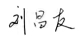 刘昌友